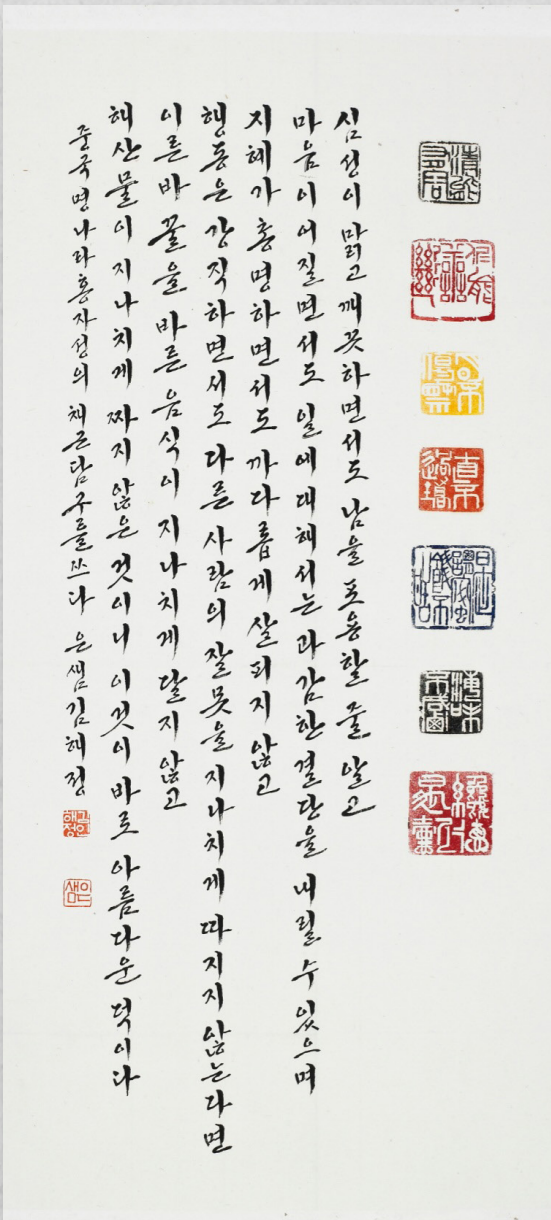 심성이 맑고 깨끗하면서도 남을 포용할 줄 알고
마음이 어질면서도 일에 대해서는 과감한 결단을 내릴 수 있으며
지혜가 총명하면서도 까다롭게 살피지 않고
행동은 강직하면서도 다른 사람의 잘못을 지나치게 따지지 않는다면
이른바 꿀을 바른 음식이 지나치게 달지 않고
해산물이 지나치게 짜지 않은 것이니 이것이 바로 아름다운 덕이다
중국 명나라 홍자성의 채근담구를 쓰다 은샘 김혜정
은샘